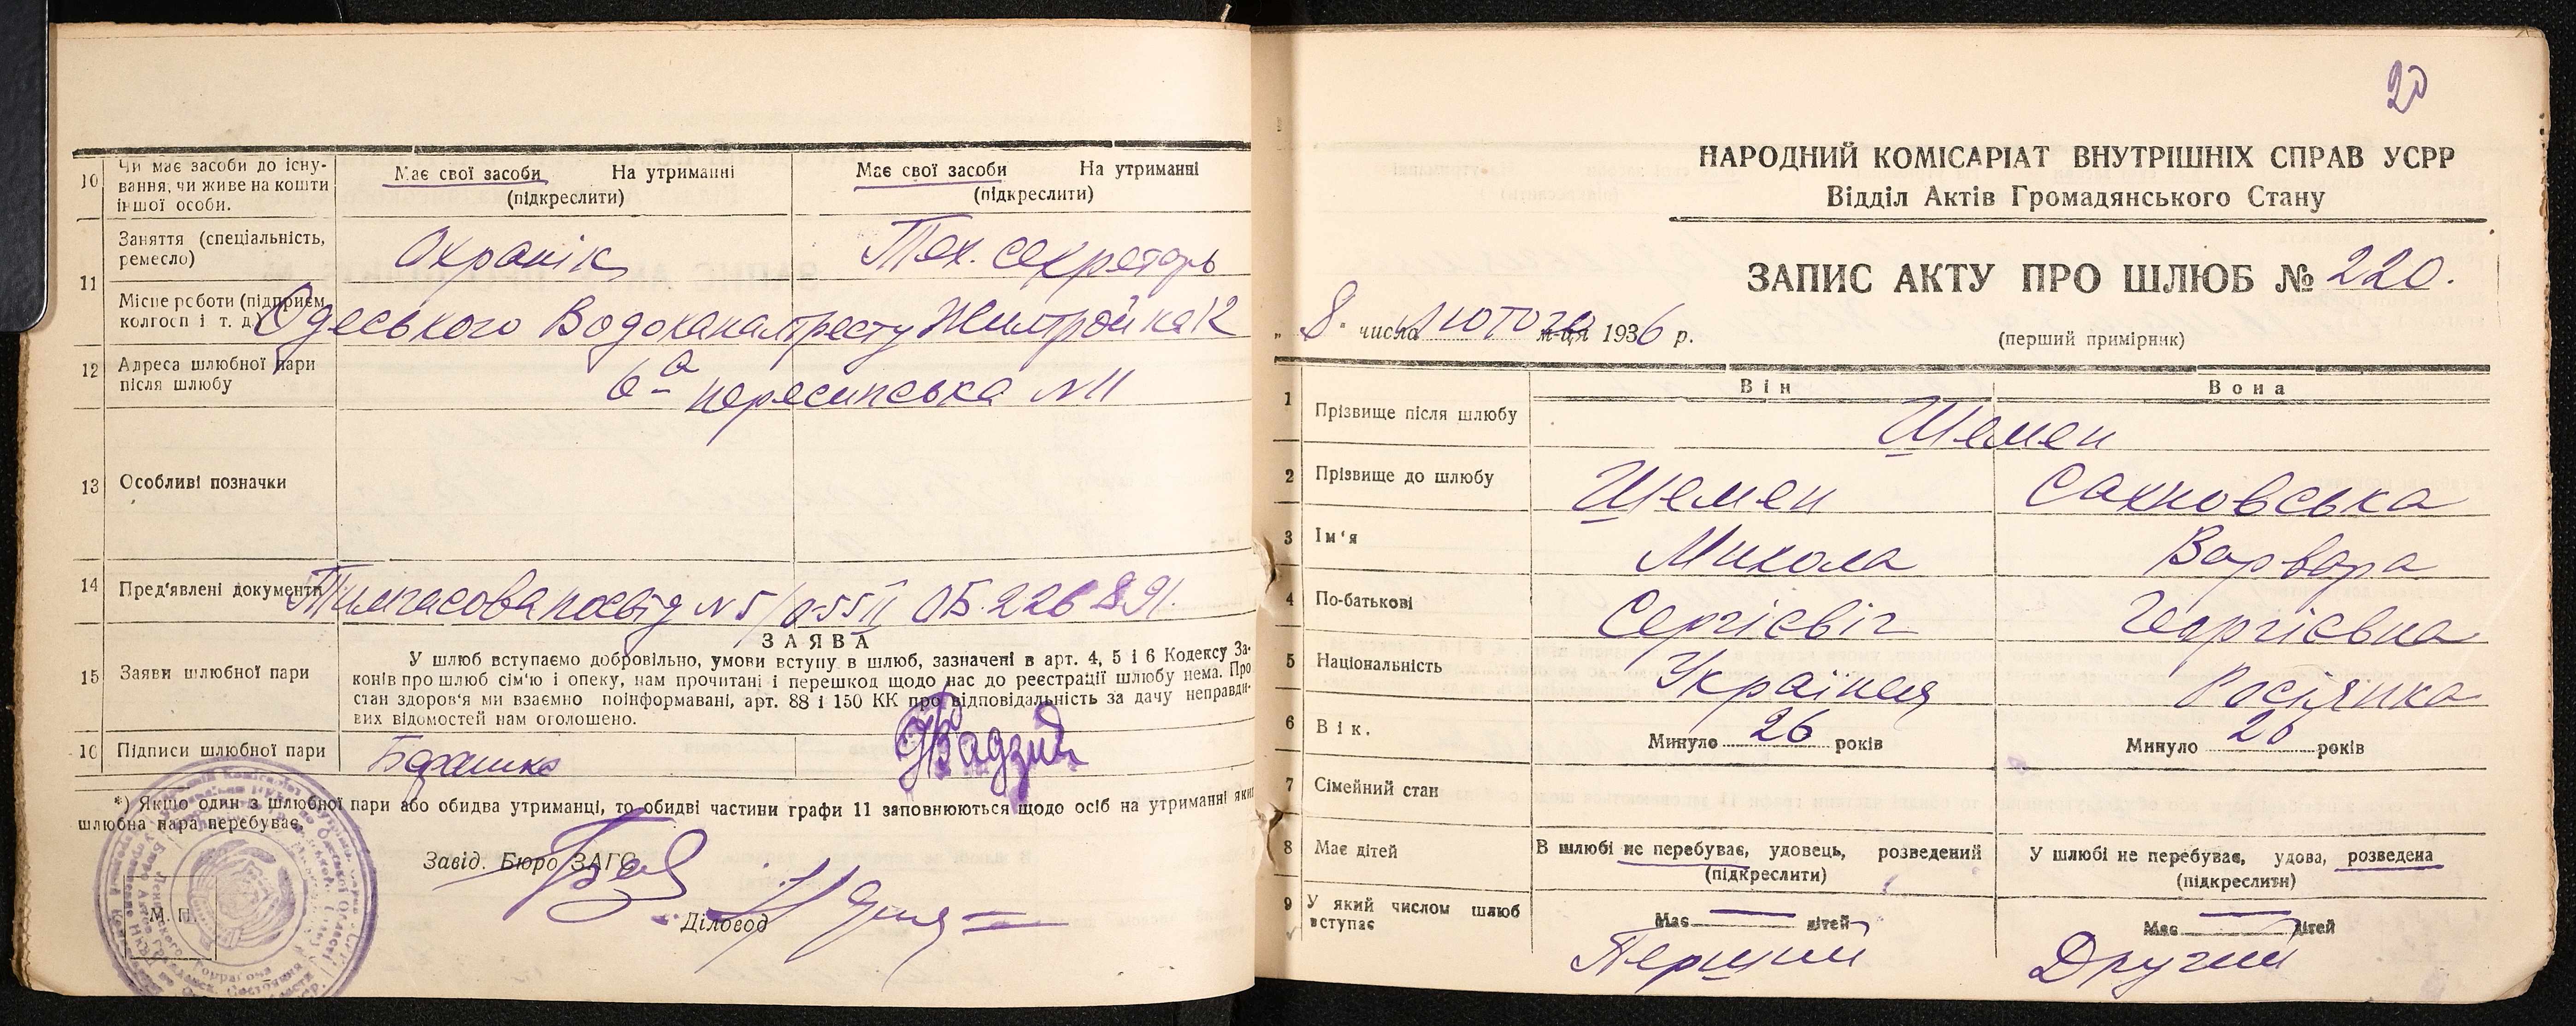 10 Чи має засоби до існу-
вання, чи живе на кошти
іншої особи.
Має свої засоби На утриманні
(підкреслити)
Має свої засоби На утриманні
(підкреслити)
11 Заняття (спеціальність,
ремесло)
Охранік
Тех. секретарь
Місце роботи (підприєм.
колгосп і т. д.)
Одеського Водоканалтресту
12 Адреса шлюбної пари
після шлюбу
6а пересипська N 11
13 Особливі позначки
14 Пред'явлені документи
Тимчасова посвід N 5/0-55 II ОБ. 226891.
15 Заяви шлюбної пари
ЗАЯВА
У шлюб вступаємо добровільно, умови вступу в шлюб, зазначені в арт. 4, 5 і 6 Кодексу За-
конів про шлюб сім'ю і опеку, нам прочитані і перешкод щодо нас до реєстрації шлюбу нема. Про
стан здоров'я ми взаємно поінформавані, арт. 88 і 150 КК про відповідальність за дачу неправди-
вих відомостей нам оголошено.
16 Підписи шлюбної пари
*) Якщо один з шлюбної пари або обидва утриманці, то обидві частини графи 11 заповнюються щодо осіб на утриманні яких
шлюбна пара перебуває.
Завід. Бюро ЗАГС
Діловод
М. П.
20
НАРОДНИЙ КОМІСАРІАТ ВНУТРІШНІХ СПРАВ УСРР
Відділ Актів Громадянського Стану
ЗАПИС АКТУ ПРО ШЛЮБ № 220.
„ 8 " числа лютого м-ця 1936 р.
(перший примірник)
Він Вона
1 Прізвище після шлюбу
Шемен
2 Прізвище до шлюбу Шемен Сахновська
3 Ім'я Микола Варвара
4 По-батькові Сергієвіч Георгієвна
5 Національність Українец Росіянка
6 Вік. Минуло 26 років Минуло 26 років
7 Сімейний стан
8 Має дітей
В шлюбі не перебуває, удовець, розведений
(підкреслити)
У шлюбі не перебуває, удова, розведена
(підкреслити)
9 У який числом шлюб
вступає
Має — дітей
Має — дітей
Перший
Другий